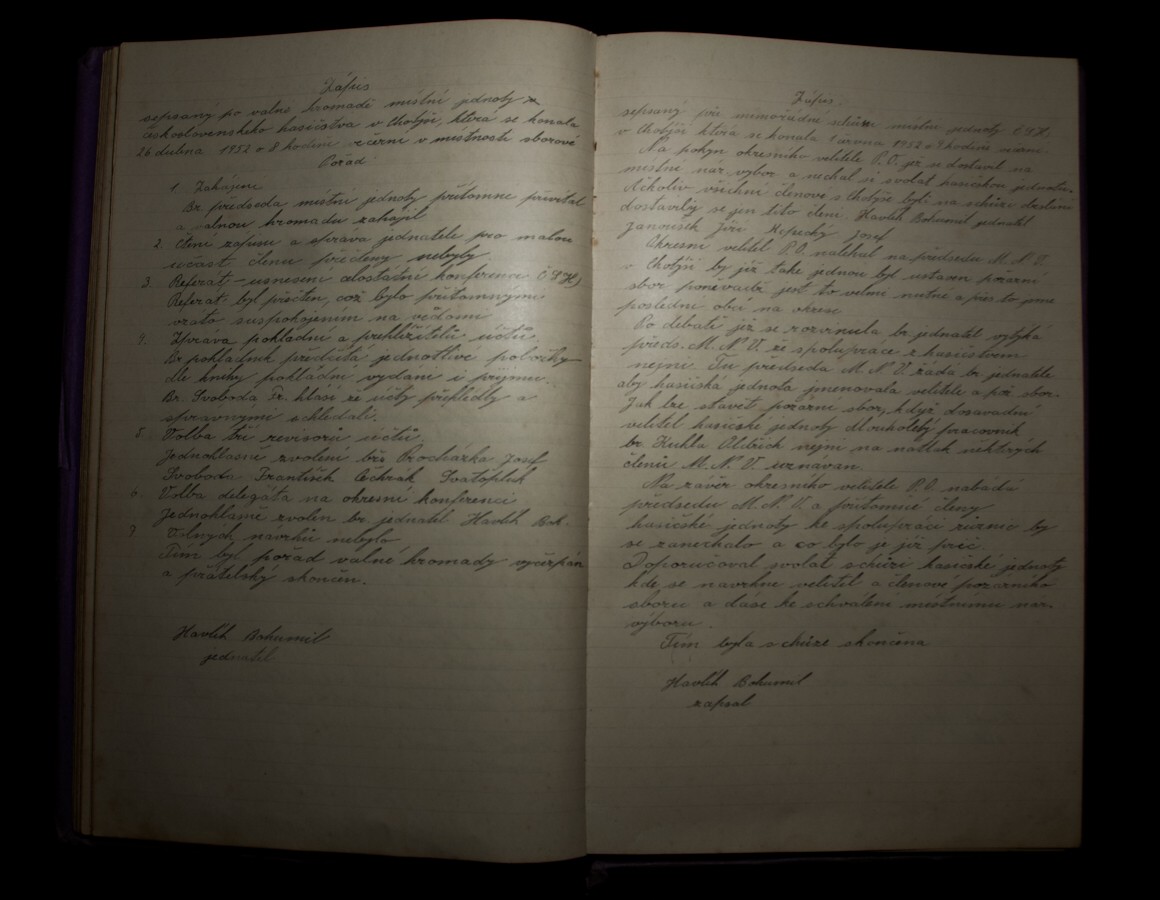 Zápis
sepsaný po valné hromadě místní jednoty
československého hasičstva v Chotýši, která se konala
26 dubna 1952 o 8 hodině večerní v místnosti sborové
Pořad
1 Zahájení
Br předseda místní jednoty přítomné přivítal
a valnou hromadu zahájil
2. Čtení zápisu a zpráva jednatele pro malou
účast členů přečteny nebyly.
3 Referát - usnesení celostátní konference Č S H,
Referát byl přečten, což bylo přítomnými
vzato s uspokojením na vědomí
4. Zpráva pokladní a přehlížitelů účtů.
Br pokladník předčítá jednotlivé položky
dle knihy pokladní vydání i příjmu.
Br. Svoboda Fr. hlásí že účty přehlédly a
spravnými schledali.
5 Volba tří revisorů účtů.
Jednohlasně zvoleni bři Procházka Josef
Svoboda František Čechrák Svatopluk
6 Volba delegáta na okresní konferenci
Jednohlasně zvolen br. jednatel Havlík Boh.
7 Volných návrhů nebylo
Tím byl pořad valné hromady vyčerpán
a přátelský skončen.
Havlík Bohumil
jednatel
Zápis
sepsaný při mimořádné schůzi místní jednoty Č S H,
v Chotýši která se konala 1 června 1952 o 9 hodině večerní.
Na pokyn okresního velitele P.O. jež se dostavil na
místní nár. výbor a nechal si svolat hasičskou jednotu.
Ačkoliv všichni členové s Chotýše byli na schůzi
dostavily se jen tito členi. Havlík Bohumil jednatel
Janoušek Jiří Josef
Okresní velitel P.O. naléhal na předsedu M. N. V.
v Chotýši by již také jednou byl ustaven požární
sbor poněvadž jest to velmi nutné a přes to jsme
poslední obcí na okrese
Po debatě jež se rozvinula br jednatel vytýká
předs. M. N. V. že spolupráce z hasičstvem
nejni. Tu předseda M N V žádá br jednatele
aby hasičská jednota jmenovala velitele a pož sbor.
Jak lze stavět požární sbor, když dosavadní
velitel hasičské jednoty dlouholetý pracovník
br Kuhla Oldřich nejni na nátlak některých
členů M. N. V. uznáván.
Na závěr okresního velitele P.O. nabádá
předsedu M. N. V a přítomné členy
hasičské jednoty ke spolupráci různic by
se zanechalo a co bylo je již pryč.
Doporučoval svolat schůzi hasičské jednoty
kde se navrhne velitel a členové požárního
sboru a dáse ke schválení místnímu nár.
výboru.
Tím byla schůze skončena
Havlík Bohumil
zapsal